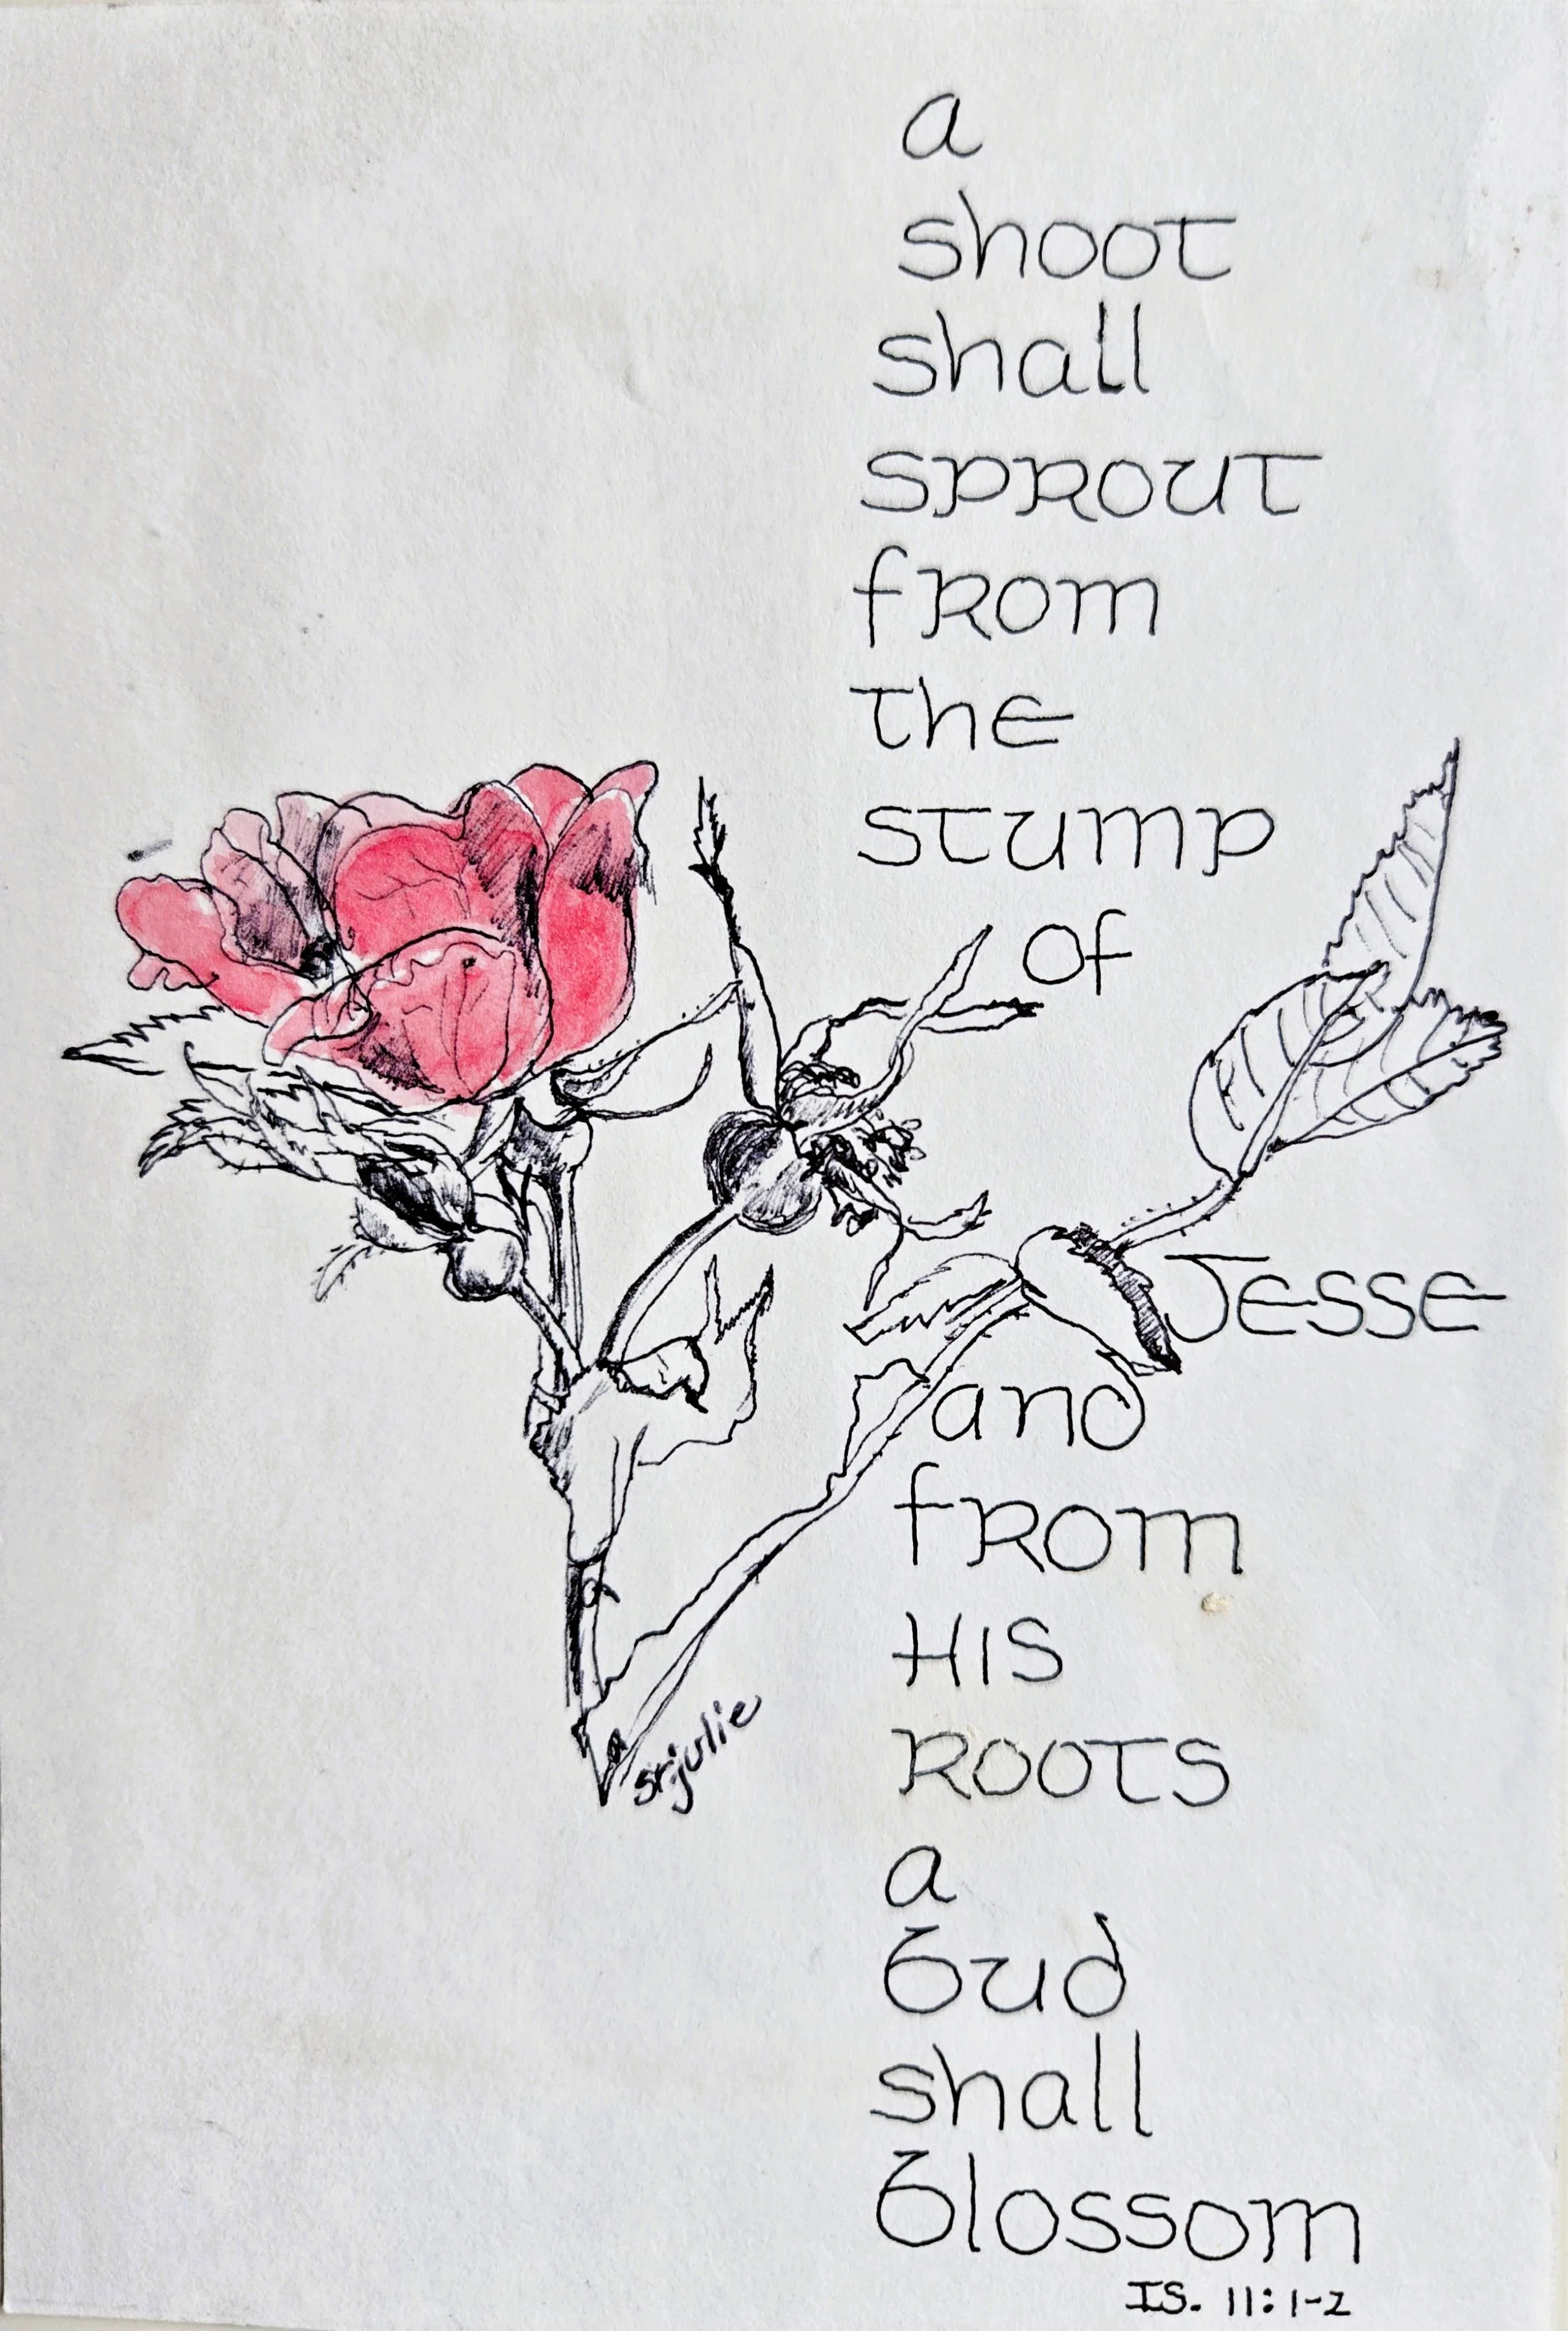 a
shoot
shall
sprout
from
the
stump
of
Jesse
and
from
HIS
ROOTS
a
bud
shall
blossom
IS. 11:1-2
sr. julie